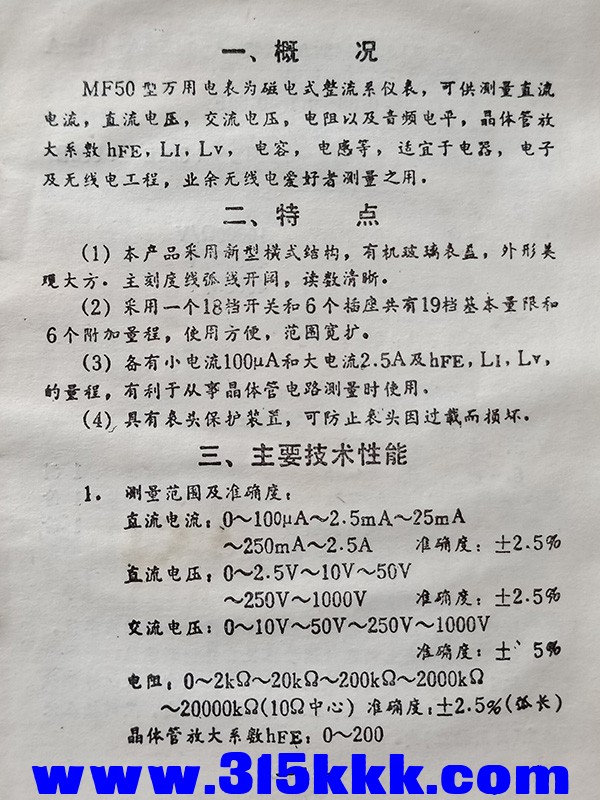 一、概 况
MF50型万用电表为磁电式整流系仪表，可供测量直流
电流，直流电压，交流电压，电阻以及音频电平，晶体管放
大系数hFE，LI，LV，电容，电感等，适宜于电器，电子
及无线电工程，业余无线电爱好者测量之用。
二、特 点
(1) 本产品采用新型横式结构，有机玻璃表盖，外形美
观大方。主刻度线弧线开阔，读数清晰。
(2) 采用一个18档开关和6个插座共有19档基本量限和
6个附加量程，使用方便，范围宽扩。
(3) 备有小电流100μA和大电流2.5A及hFE，LI，LV，
的量程，有利于从事晶体管电路测量时使用。
(4) 具有表头保护装置，可防止表头因过载而损坏。
三、主要技术性能
1。 测量范围及准确度：
直流电流：0～100μA～2.5mA～25mA
～250mA～2.5A 准确度：±2.5%
直流电压：0～2.5V～10V～50V
～250V～1000V 准确度：±2.5%
交流电压：0～10V～50V～250V～1000V
准确度：± 5%
电阻：0～2kΩ～20kΩ～200kΩ～2000kΩ
～20000kΩ(10Ω中心) 准确度：±2.5%(弧长)
晶体管放大系数hFE：0～200
www.315kkk.com